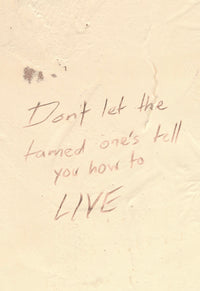 Don't let the
tamed one's tell
you how to
LIVE.